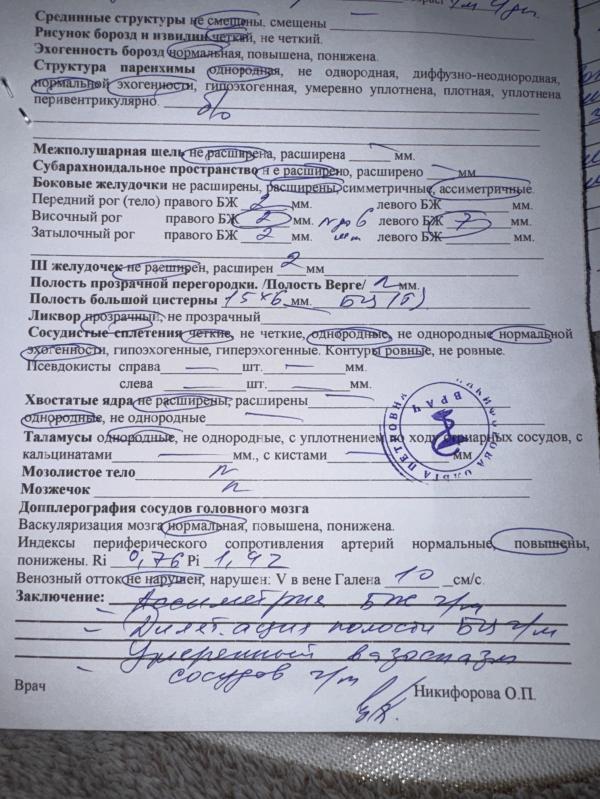 Срединные структуры не смещены, смещены
Рисунок борозд и извилин четкий, не четкий.
Эхогенность борозд нормальная, повышена, понижена.
Структура паренхимы однородная, не однородная, диффузно-неоднородная,
нормальной эхогенности, гипоэхогенная, умеренно уплотнена, плотная, уплотнена
перивентрикулярно. б/о
Межполушарная щель не расширена, расширена мм.
Субарахноидальное пространство н е расширено, расширено мм
Боковые желудочки не расширены, расширены, симметричные, ассиметричные.
Передний рог (тело) правого БЖ 2 мм. левого БЖ мм.
Височный рог правого БЖ 2 мм. N до 6 мм левого БЖ 7 мм.
Затылочный рог правого БЖ 2 мм. левого БЖ мм.
III желудочек не расширен, расширен 2 мм
Полость прозрачной перегородки. /Полость Верге/ мм.
Полость большой цистерны 15х6 мм. БЦ
Ликвор прозрачный, не прозрачный
Сосудистые сплетения четкие, не четкие, однородные, не однородные нормальной
эхогенности, гипоэхогенные, гиперэхогенные. Контуры ровные, не ровные.
Псевдокисты справа шт. мм.
слева шт. мм.
Хвостатые ядра не расширены, расширены
однородные, не однородные
Таламусы однородные, не однородные, с уплотнением по ходу стриарных сосудов, с
кальцинатами мм., с кистами мм
Мозолистое тело N
Мозжечок N
Допплерография сосудов головного мозга
Васкуляризация мозга нормальная, повышена, понижена.
Индексы периферического сопротивления артерий нормальные, повышены,
понижены. Ri 0,76 Pi 1,92
Венозный отток не нарушен, нарушен: V в вене Галена 10 см/с.
Заключение: Ассиметрия БЖ г/м
– Дилатация полости БЦ г/м
– Умеренный вазоспазм
сосудов г/м
Врач Никифорова О.П.
ВРАЧ
НИКИФОРОВА ОЛЬГА ПЕТРОВНА